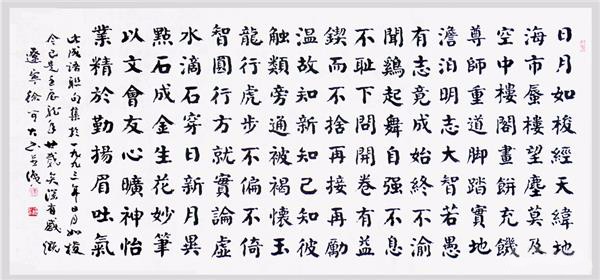 日月如梭經天緯地
海市蜃樓望塵莫及
空中樓閣畫餅充饑
尊師重道脚踏實地
澹泊明志大智若愚
有志竟成始終不渝
聞鷄起舞自强不息
不耻下問開卷有益
鍥而不捨再接再勵
温故知新知己知彼
觸類旁通被褐懷玉
龍行虎步不偏不倚
智圓行方就實論虛
水滴石穿日新月異
點石成金生花妙筆
以文會友心曠神怡
業精於勤揚眉吐氣
此成語聯句集於一九九三年日月如梭
今已是壬辰龍年廿載矣深有感慨
遼寧徐可大